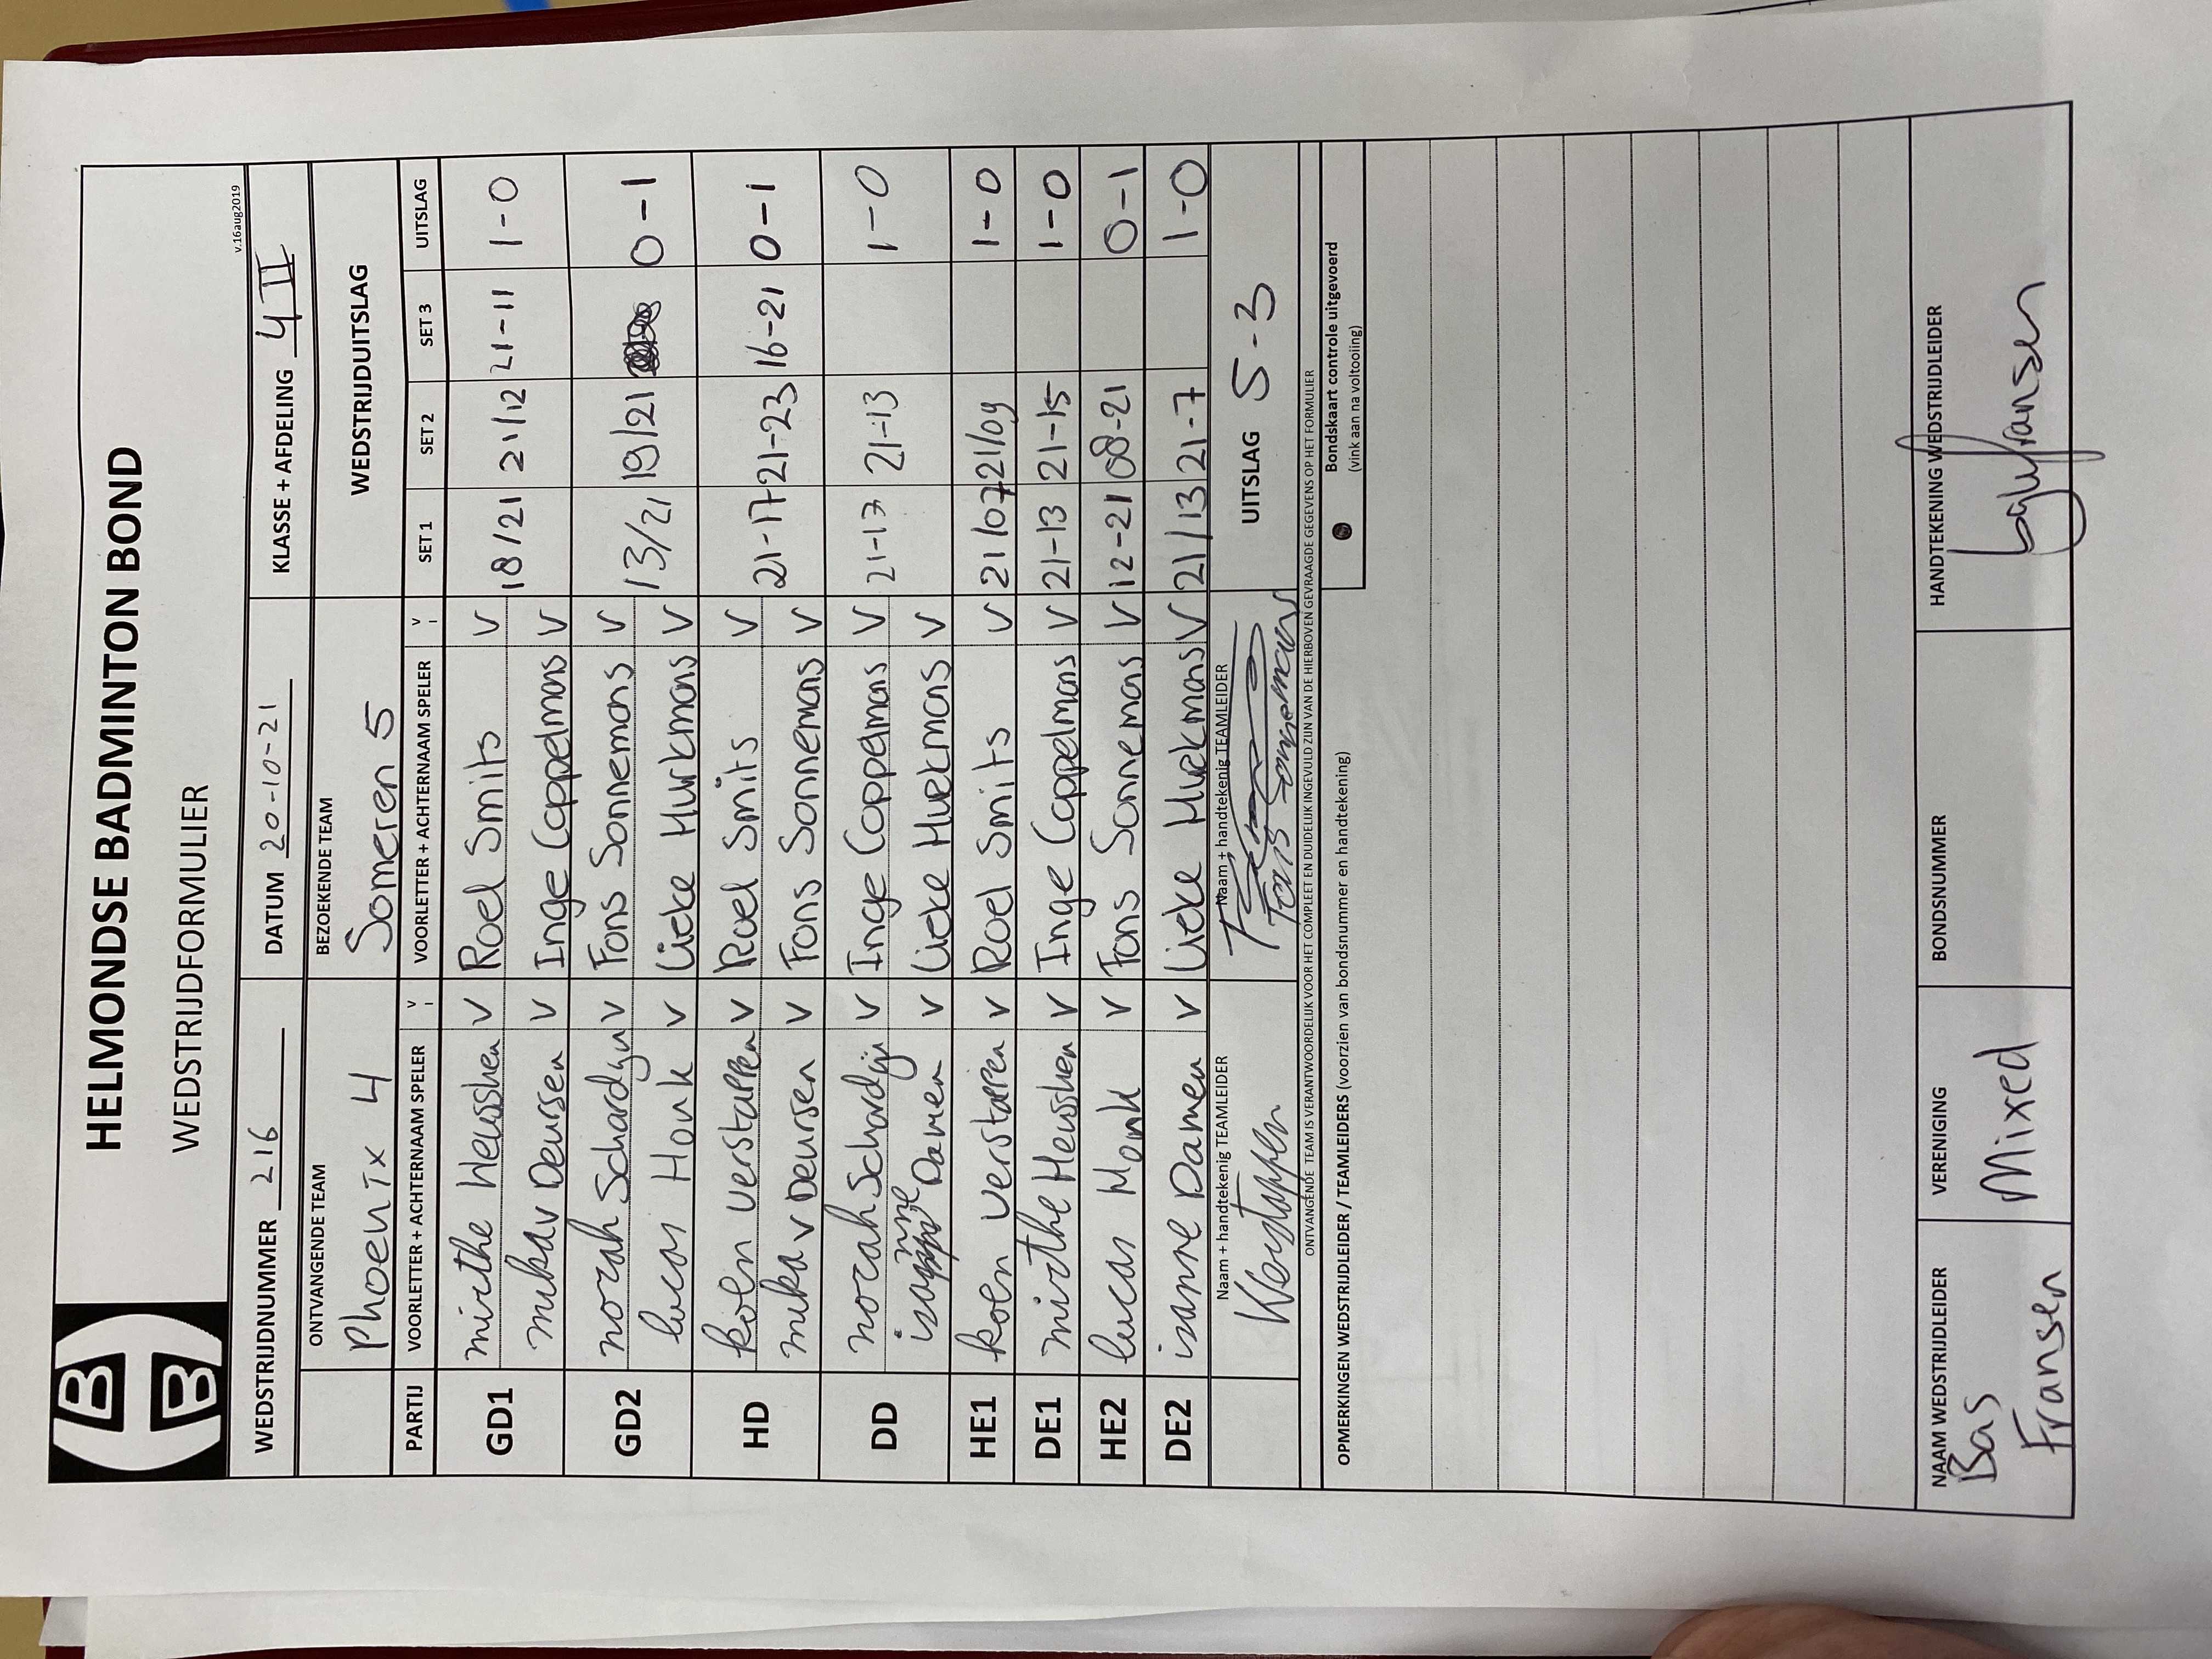 HELMONDSE BADMINTON BOND
WEDSTRIJDFORMULIER
v.16aug2019
WEDSTRIJDNUMMER 216 DATUM 20-10-21 KLASSE + AFDELING 4 II
ONTVANGENDE TEAM BEZOEKENDE TEAM WEDSTRIJDUITSLAG
Phoenix 4 Someren 5
PARTIJ VOORLETTER + ACHTERNAAM SPELER V VOORLETTER + ACHTERNAAM SPELER V SET 1 SET 2 SET 3 UITSLAG
GD1 mirthe Heusshen V Roel Smits V 18/21 21/12 21-11 1-0
mika v Deursen V Inge Coppelmans V
GD2 norah Schardijn V Fons Sonnemans V 13/21 19/21 0-1
lucas Honk V Lieke Hurkmans V
HD koen verstappen V Roel Smits V 21-17 21-23 16-21 0-1
mika v Deursen V Fons Sonnemans V
DD norah Schardijn V Inge Coppelmans V 21-13 21-13 1-0
isanne Damen V Lieke Hurkmans V
HE1 koen verstappen V Roel Smits V 21/07 21/09 1-0
DE1 mirthe Heusshen V Inge Coppelmans V 21-13 21-15 1-0
HE2 lucas Monk V Fons Sonnemans V 12-21 08-21 0-1
DE2 isanne Damen V Lieke Hurkmans V 21/13 21-7 1-0
Naam + handtekenig TEAMLEIDER Naam + handtekenig TEAMLEIDER UITSLAG 5-3
Verstappen Fons Sonnemans
ONTVANGENDE TEAM IS VERANTWOORDELIJK VOOR HET COMPLEET EN DUIDELIJK INGEVULD ZIJN VAN DE HIERBOVEN GEVRAAGDE GEGEVENS OP HET FORMULIER
OPMERKINGEN WEDSTRIJDLEIDER / TEAMLEIDERS (voorzien van bondsnummer en handtekening)
Bondskaart controle uitgevoerd
(vink aan na voltooiing)
NAAM WEDSTRIJDLEIDER VERENIGING BONDSNUMMER HANDTEKENING WEDSTRIJDLEIDER
Bas Fransen Mixed